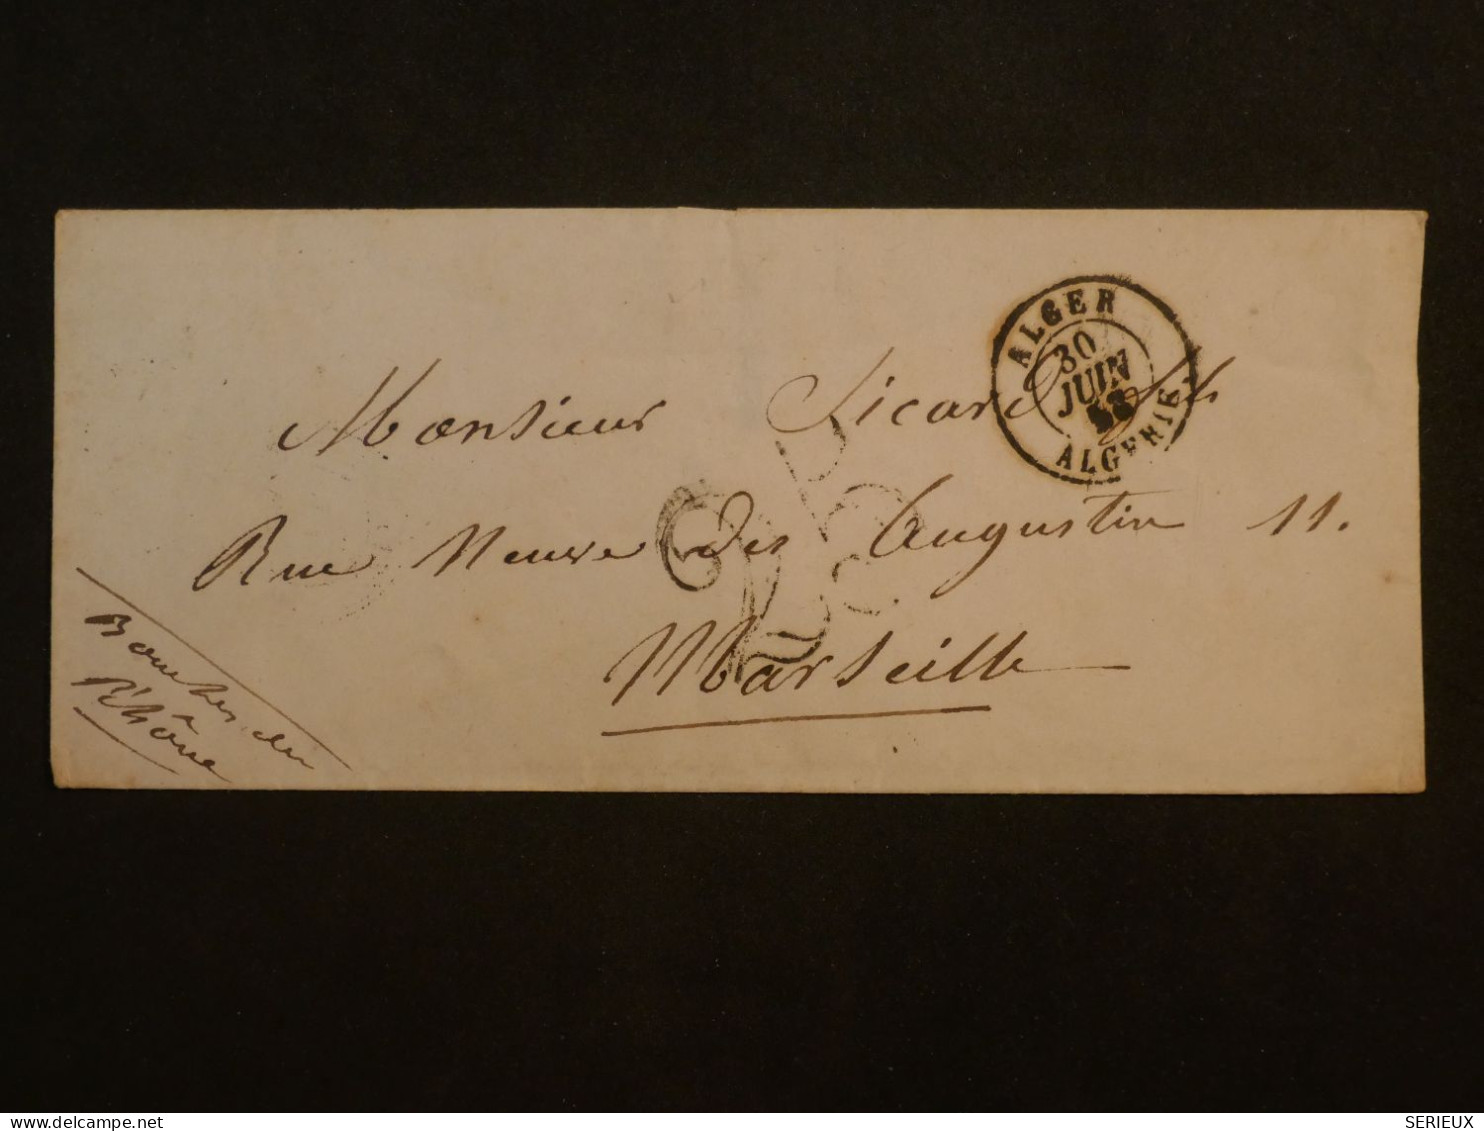 ALGER
30
JUIN
ALGERIE.
Monsieur Sicard fils
Rue Neuve des Augustin 11.
Marseille
Bouches du
Rhône
delcampe.net
SERIEUX